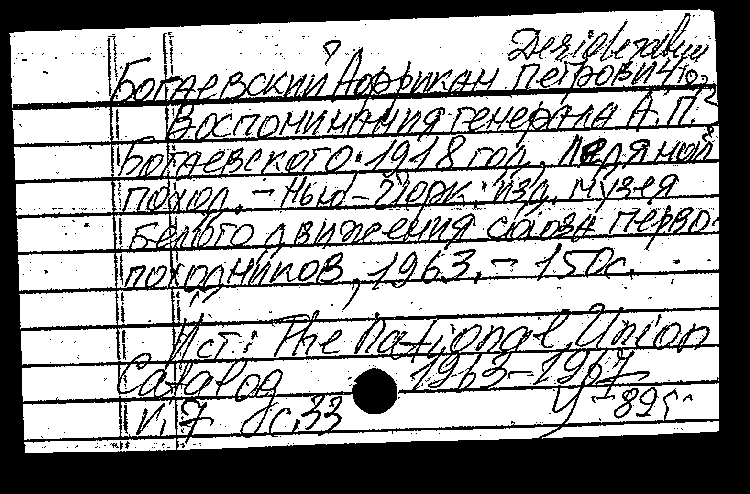 Desiderabyu
Богаевский Аффрикан Петрович
Воспоминания генерала А.П.
Богаевского. 1918 год, Ледяной
поход. – Нью-Йорк: изд. музея
Белого движения союза перво-
походников, 1963. – 150с.
Ист: The National Union
Catalog 1963–1967
V. 7 с. 33